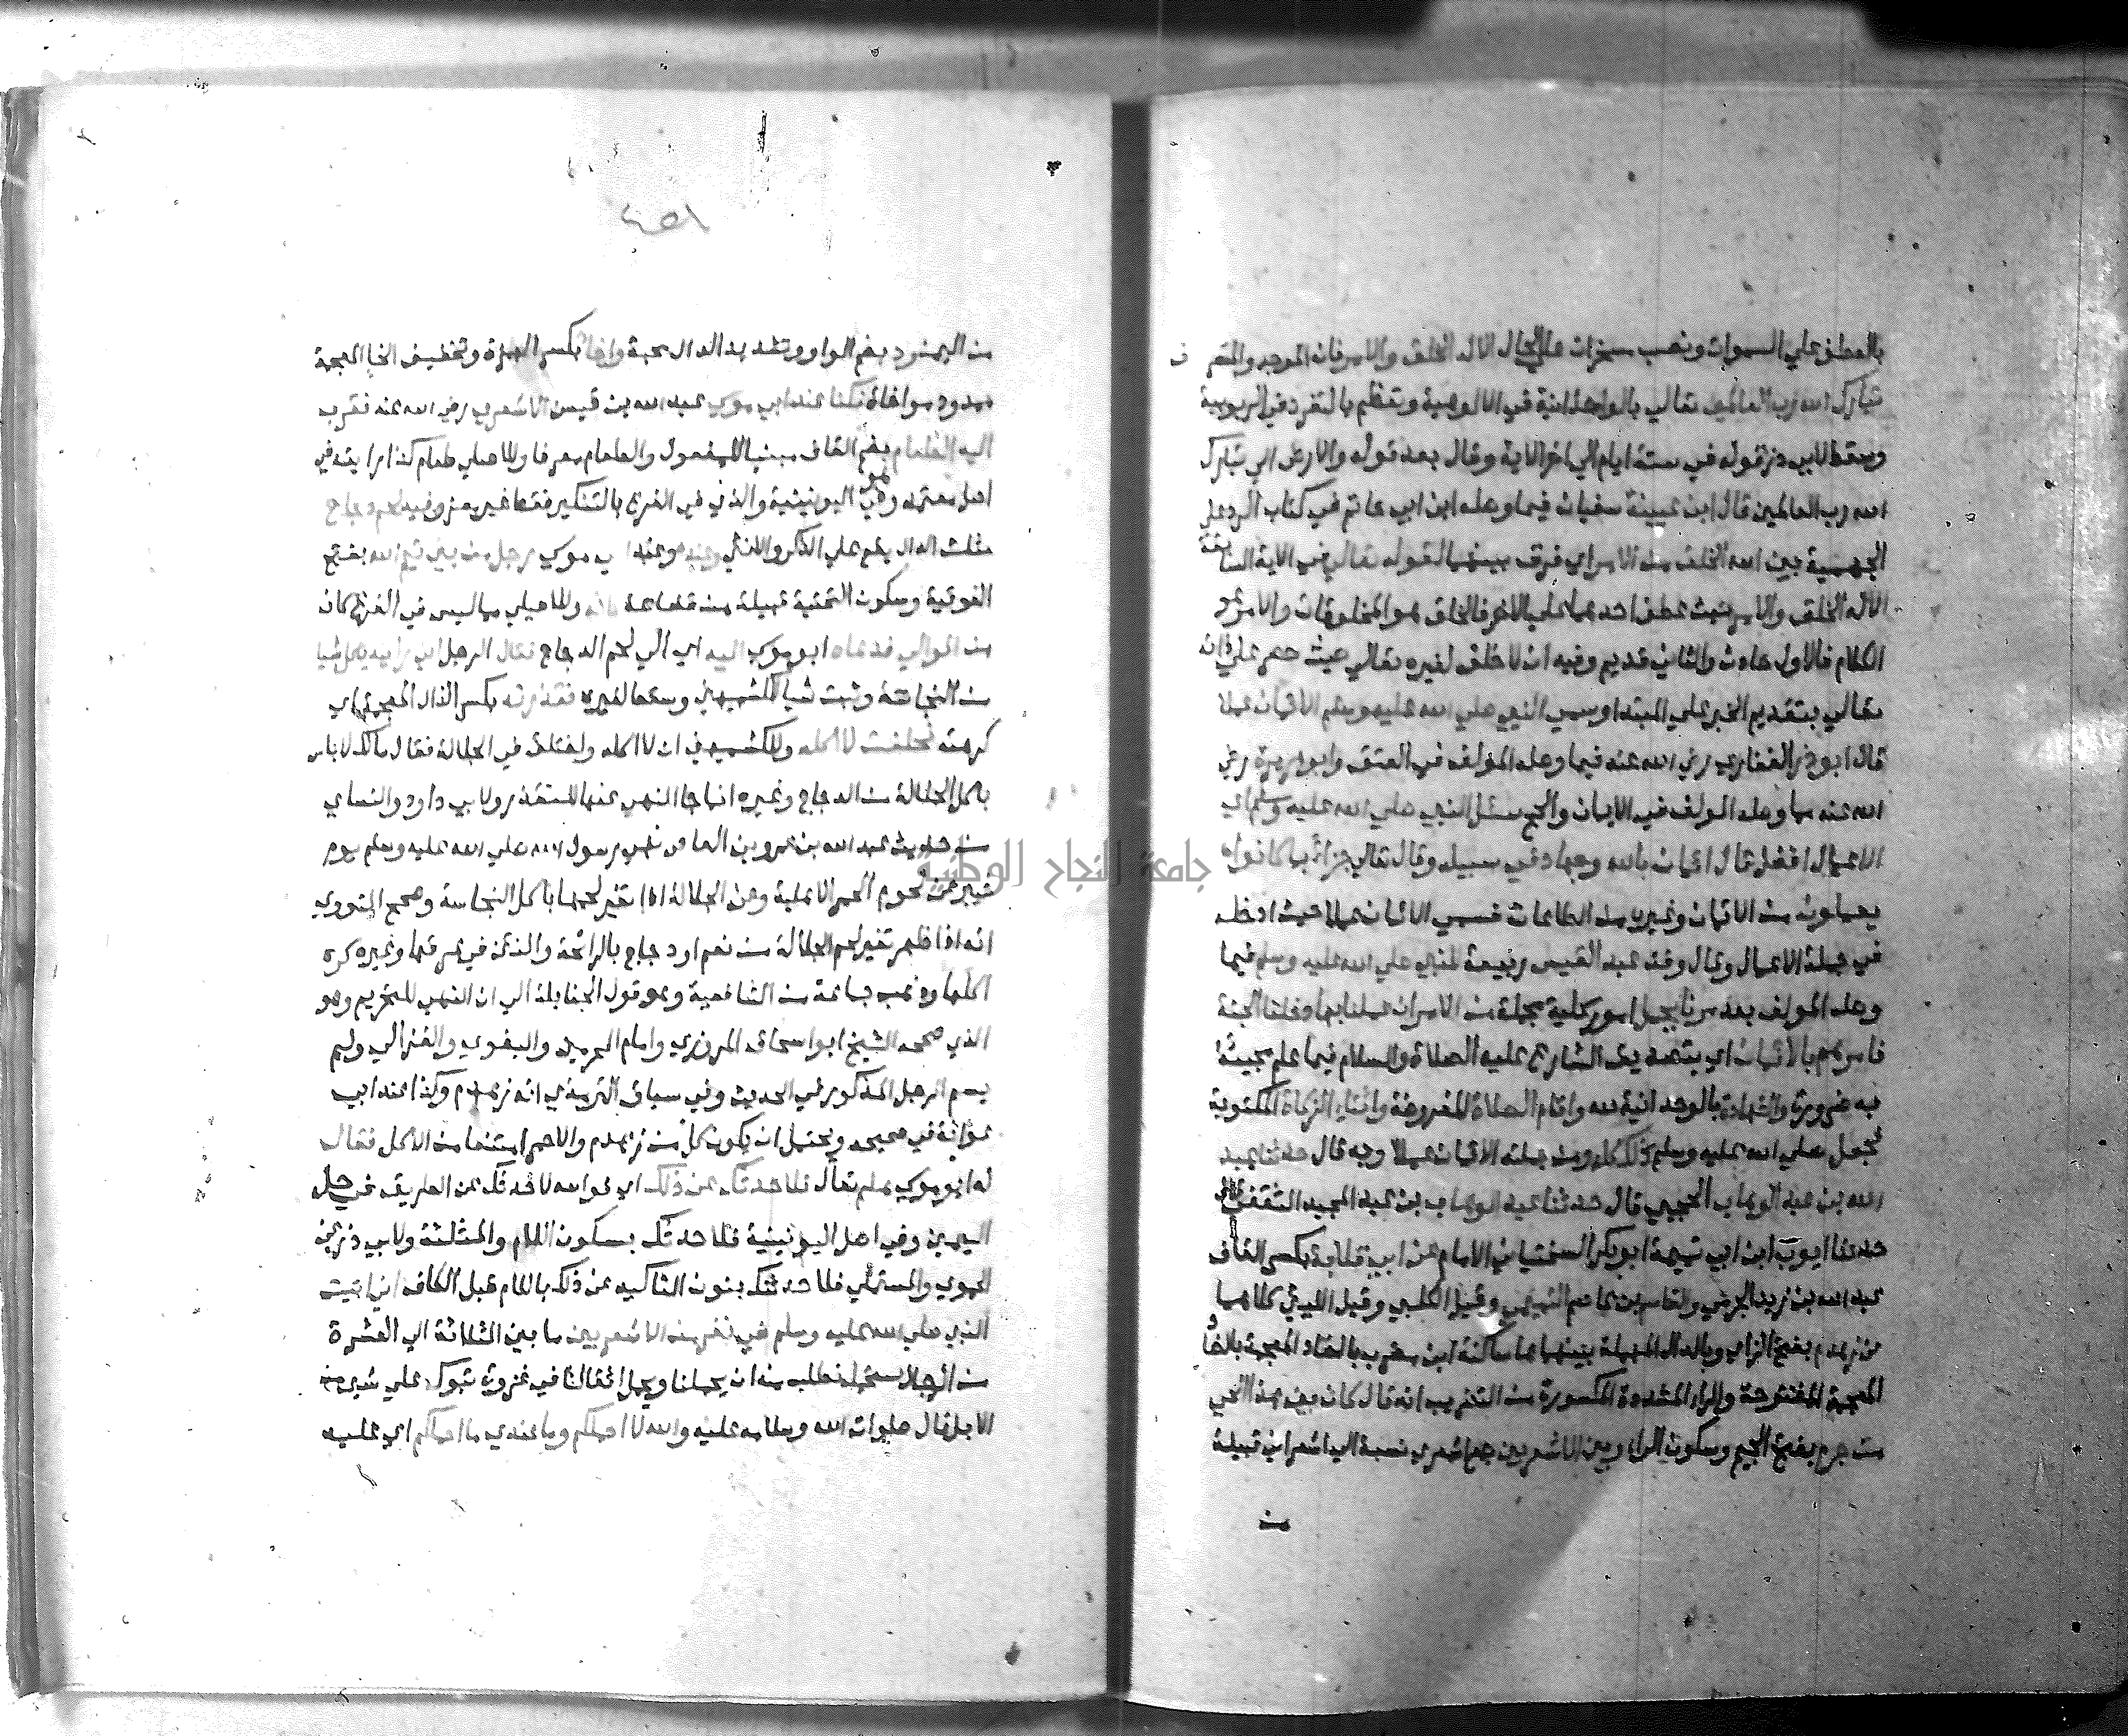 بالعطف علي السموات ونصب مسخرات علي الحال الا له الخلق والامر فانه الموجد والمتصرف
تبارك الله رب العالمين تعالي بالواحدانية في الالوهية وتعظم بالتفرد في الربوبية
وسقط لابي ذر قوله في ستة ايام الي اخر الاية وقال بعد قوله والارض الي تبارك
الله رب العالمين قال ابن عيينة سفيان فيما وصله ابن ابي حاتم في كتاب الرد علي
الجهمية بين الله الخلق من الامر اي فرق بينهما لقوله تعالي في الاية السابقة
الا له الخلق والامر حيث عطف احدهما علي الاخر فالخلق هو المخلوقات والامر هو
الكلام فالاول حادث والثاني قديم وفيه ان لا خلق لغيره تعالي حيث حصر علي ذاته
تعالي بتقديم الخبر علي المبتدا وسمي النبي صلي الله عليه وسلم الايمان عملا
قال ابو ذر الغفاري رضي الله عنه فيما وصله المؤلف في العتق وابو هريرة رضي
الله عنه مما وصله المولف في الايمان والحج سئل النبي صلي الله عليه وسلم اي
الاعمال افضل قال ايمان بالله وجهاد في سبيله وقال تعالي جزاء بما كانوا
يعملون من الايمان وغيره من الطاعات فسمي الايمان عملا حيث ادخله
في جملة الاعمال وقال وفد عبد القيس ربيعة للنبي صلي الله عليه وسلم فيما
وصله المولف بعد مرنا بجمل امور كلية مجملة من الامر ان عملنا بها دخلنا الجنة
فامرهم بالايمان اي بتصديق الشارع عليه الصلاة والسلام فيما علم مجيئه
به ضرورة والشهادة بالوحدانية لله واقام الصلاة المفروضة وايتاء الزكاة المكتوبة
فجعل صلي الله عليه وسلم ذلك كله ومن جملته الايمان عملا وبه قال حدثنا عبد
الله بن عبد الوهاب الحجبي قال حدثنا عبد الوهاب بن عبد المجيد الثقفي قال
حدثنا ايوب ابن ابي تميمة ابو بكر السختياني الامام عن ابي قلابة بكسر القاف
عبد الله بن زيد الجرمي والقاسم بن عاصم التميمي وقيل الكلبي وقيل الليثي كلاهما
عن زهدم بفتح الزاي وبالدال المهملة بينهما ها ساكنة ابن مضرب بالضاد المعجمة بالضاد
المعجمة المفتوحة والراء المشددة المكسورة من التضريب انه قال كان بين هذا الحي
من جرم بفتح الجيم وسكون الراء وبين الاشعريين جمع اشعري نسبة الي اشعر ابي قبيلة
من
من اليمن ود بضم الواو وتشديد الدال محبة واخاء بكسر الهمزة وتخفيف الخا المعجمة
ممدود مواخاة فكنا عند ابي موسي عبد الله بن قيس الاشعري رضي الله عنه فقرب
اليه الطعام بضم القاف مبنيا للمفعول والطعام معرفا وللاصلي طعام كذا رايته في
اصل معتمد وهو في اليونينية والذي في الفرع بالتنكير فقط غير معزو فيه لحم دجاج
مثلث الدال يقع علي الذكر والانثي وعنده وعند ابي موسي رجل من بني تيم الله بفتح
الفوقية وسكون التحتية قبيلة من قضاعة كانه وللاصيلي مما ليس في الفرع كان
من الموالي فدعاه ابو موسي اليه اي الي لحم الدجاج فقال الرجل اني رايته ياكل شيا
من النجاسة وثبت شيا للكشميهني وسقط لغيره فقذرته بكسر الذال المعجمة اي
كرهته فحلفت لا اكله وللكشميهني ان لا اكله واختلف في الجلالة فقال مالك لا باس
باكل الجلالة من الدجاج وغيره انما جا النهي عنها للتقذر ولابي داود والنساي
من حديث عبد الله بن عمرو بن العاص نهي رسول الله صلي الله عليه وسلم يوم
خيبر عن لحوم الحمر الاهلية وعن الجلالة اذا تغير لحمها باكل النجاسة وصحح النووي
انه اذا ظهر تغير لحم الجلالة من نعم او دجاج بالرائحة والنتن في عرقها وغيره كره
اكلها وذهب جماعة من الشافعية وهو قول الحنابلة الي ان النهي للتحريم وهو
الذي صححه الشيخ ابو اسحاق المروزي وامام الحرمين والبغوي والغزالي ولم
يسم الرجل المذكور في الحديث وفي سياق الترمذي انه زهدم وكذا عند ابي
عوانة في صحيحه ويحتمل ان يكون كل من زهدم والاحمر امتنعا من الاكل فقال
له ابو موسي هلم تعال فلاحدثك عن ذلك اي فوالله لاحدثك عن الطريق في حل
اليمين وفي اصل اليونينية فلاحدثك بسكون اللام والمثلثة ولابي ذر عن
الحموي والمستملي فلاحدثنك بنون التاكيد عن ذلك باللام قبل الكاف اني اتيت
النبي صلي الله عليه وسلم في نفر من الاشعريين ما بين الثلاثة الي العشرة
من الرجال نستحمله نطلب منه ان يحملنا ويحمل اثقالنا في غزوة تبوك علي شي من
الابل قال صلوات الله وسلامه عليه والله لا احملكم وما عندي ما احملكم اي عليه
جامعة النجاح الوطنية